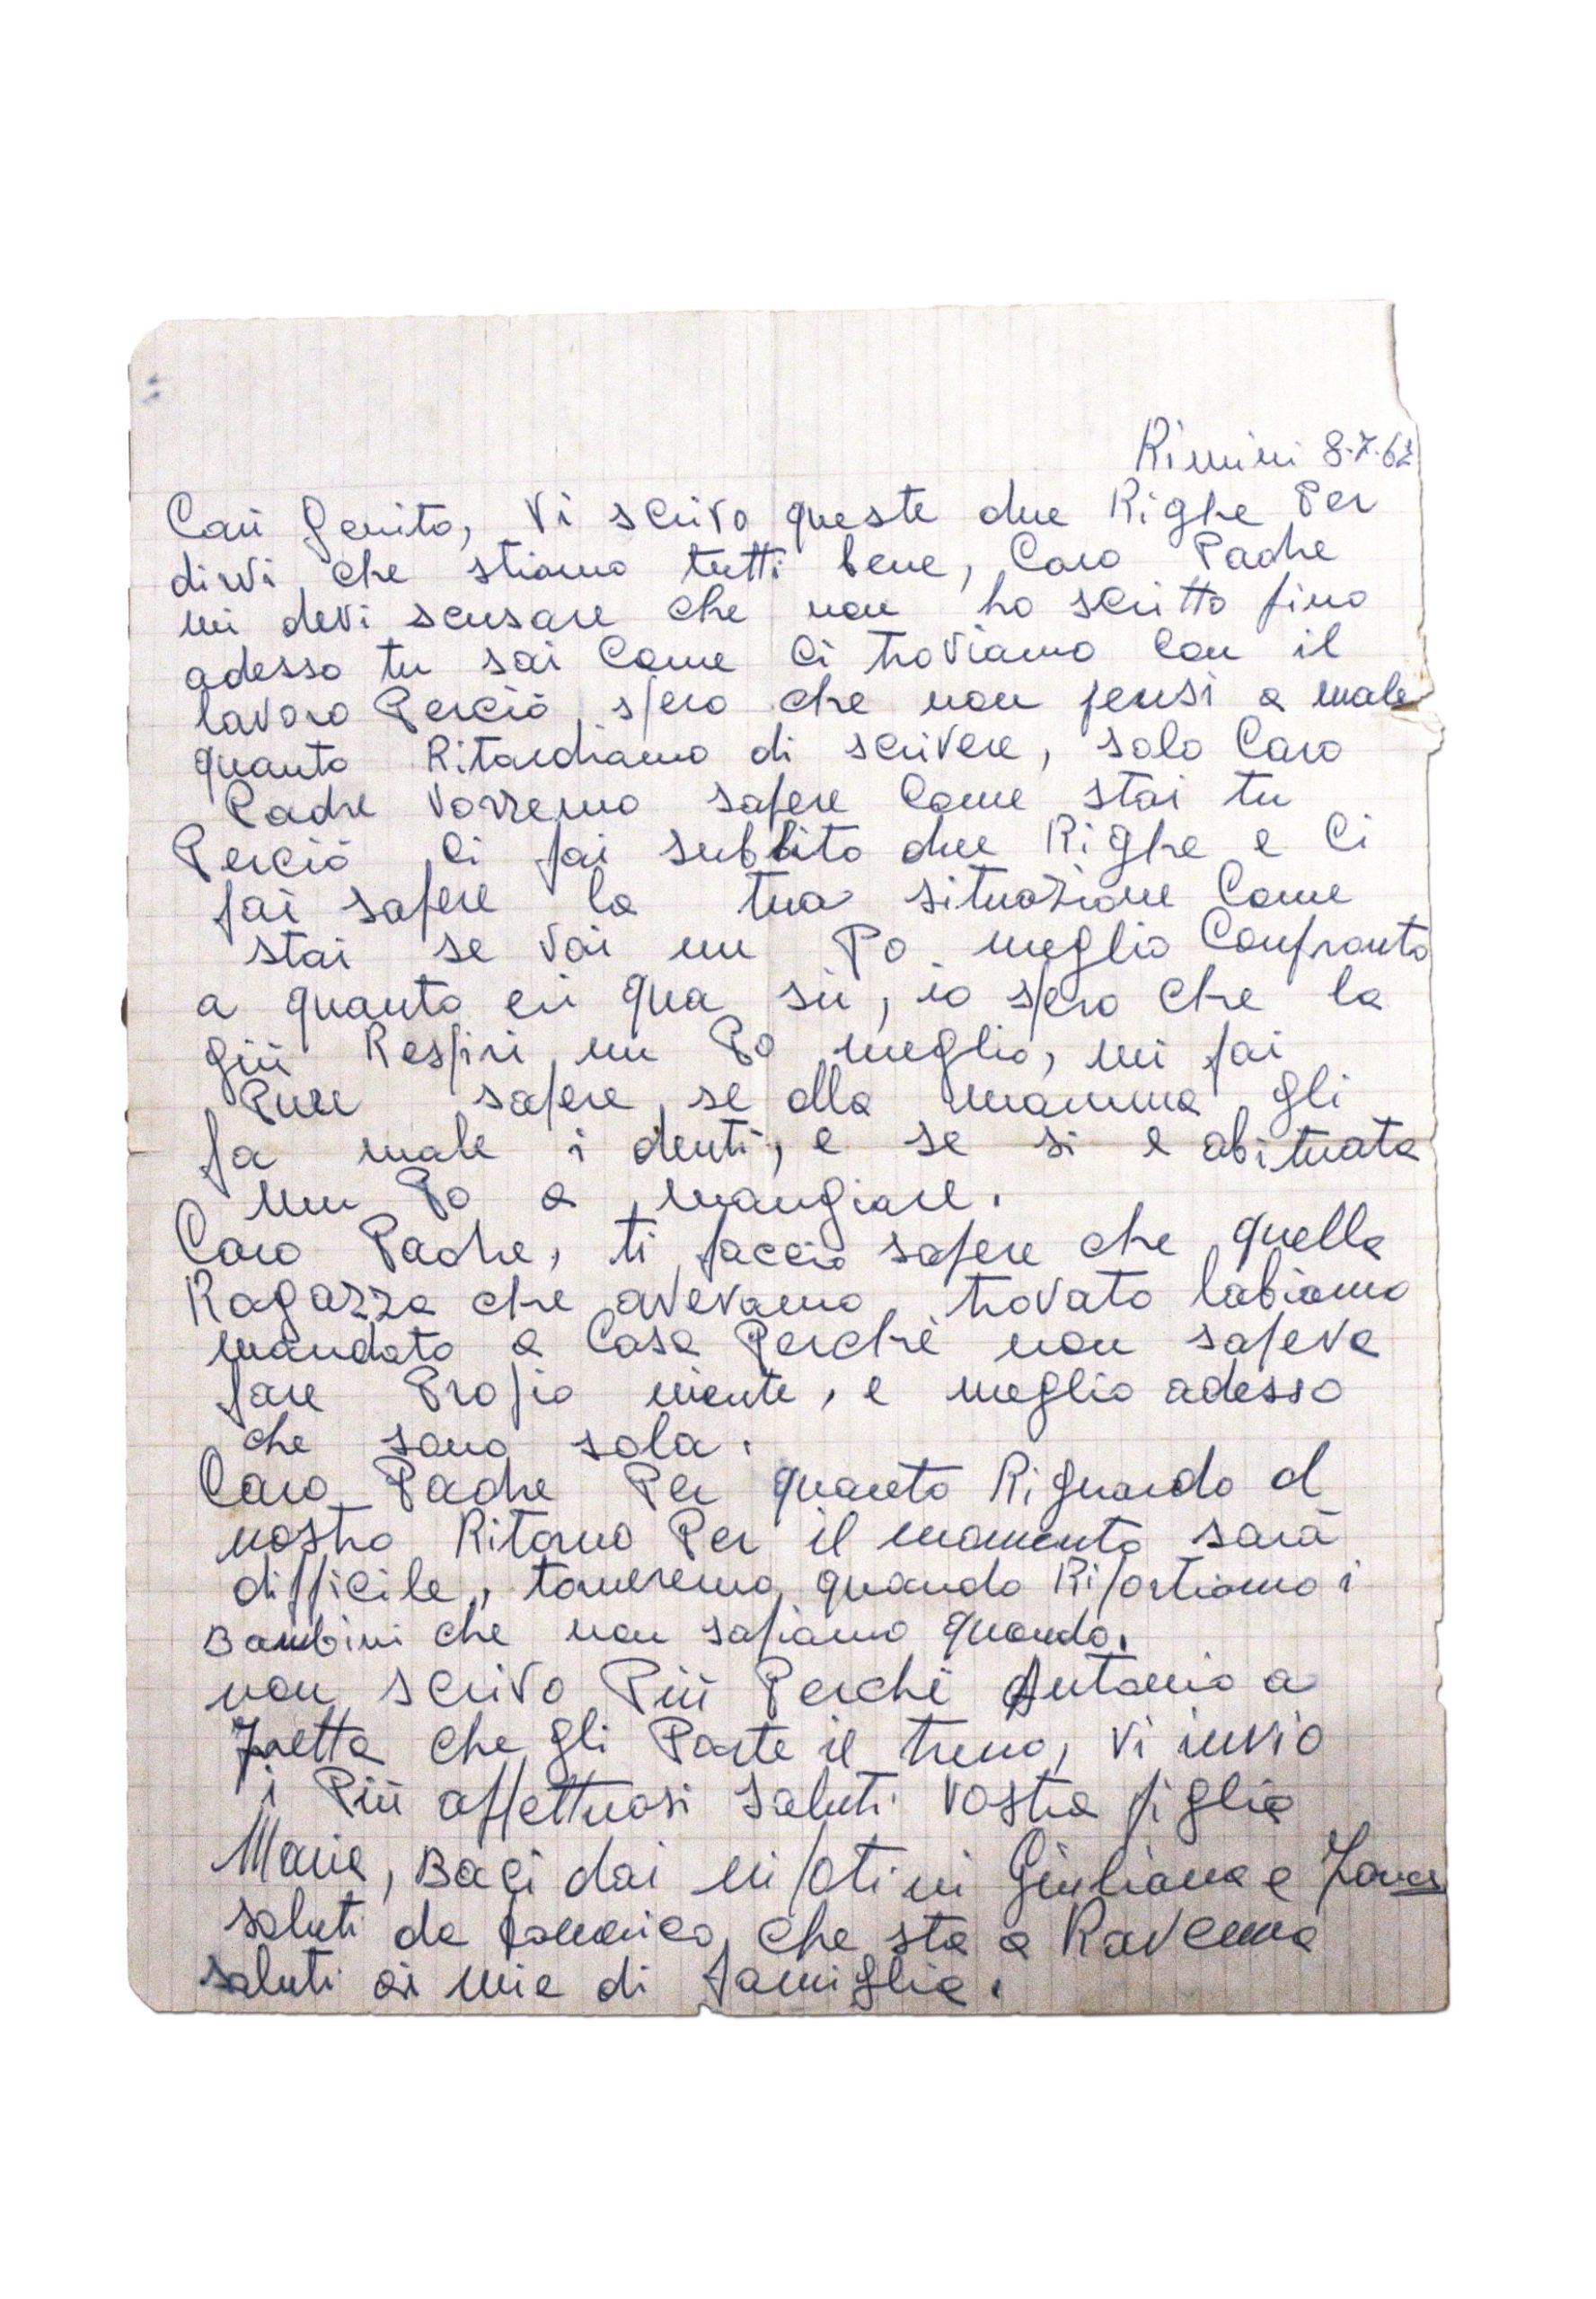 Rimini 8.7.62
Cari Genito, Vi scrivo queste due Righe Per
dirvi che stiamo tutti bene, Caro Padre
mi devi scusare che non ho scritto fino
adesso tu sai Come Ci troviamo Con il
lavoro Perciò spero che non pensi a male
quanto Ritardiamo di scrivere, solo Caro
Padre Vorremo sapere Come stai tu
Perciò Ci fai subbito due Righe e Ci
fai sapere la tua situazione Come
stai se Vai un Po meglio Confronto
a quanto eri qua sù, io spero che la
giù Respiri un Po meglio, mi fai
Pure sapere se alla mamma gli
fa male i denti, e se si e abituata
un Po a mangiare.
Caro Padre, ti faccio sapere che quella
Ragazza che avevamo trovato labiamo
mandato a Casa Perchè non sapeva
fare Propio niente, e meglio adesso
che sono sola.
Caro Padre Per quanto Riguardo al
nostro Ritorno Per il momento sarà
difficile, torneremo quando Riportiamo i
Bambini che non sapiamo quando.
non scrivo Più Perchè Antonio a
fretta che gli Parte il treno, Vi invio
i Più affettuosi saluti Vostra figlia
Maria, Baci dai nipotini Giuliana e
saluti da che sta a Ravenna
saluti ai mie di famiglia.